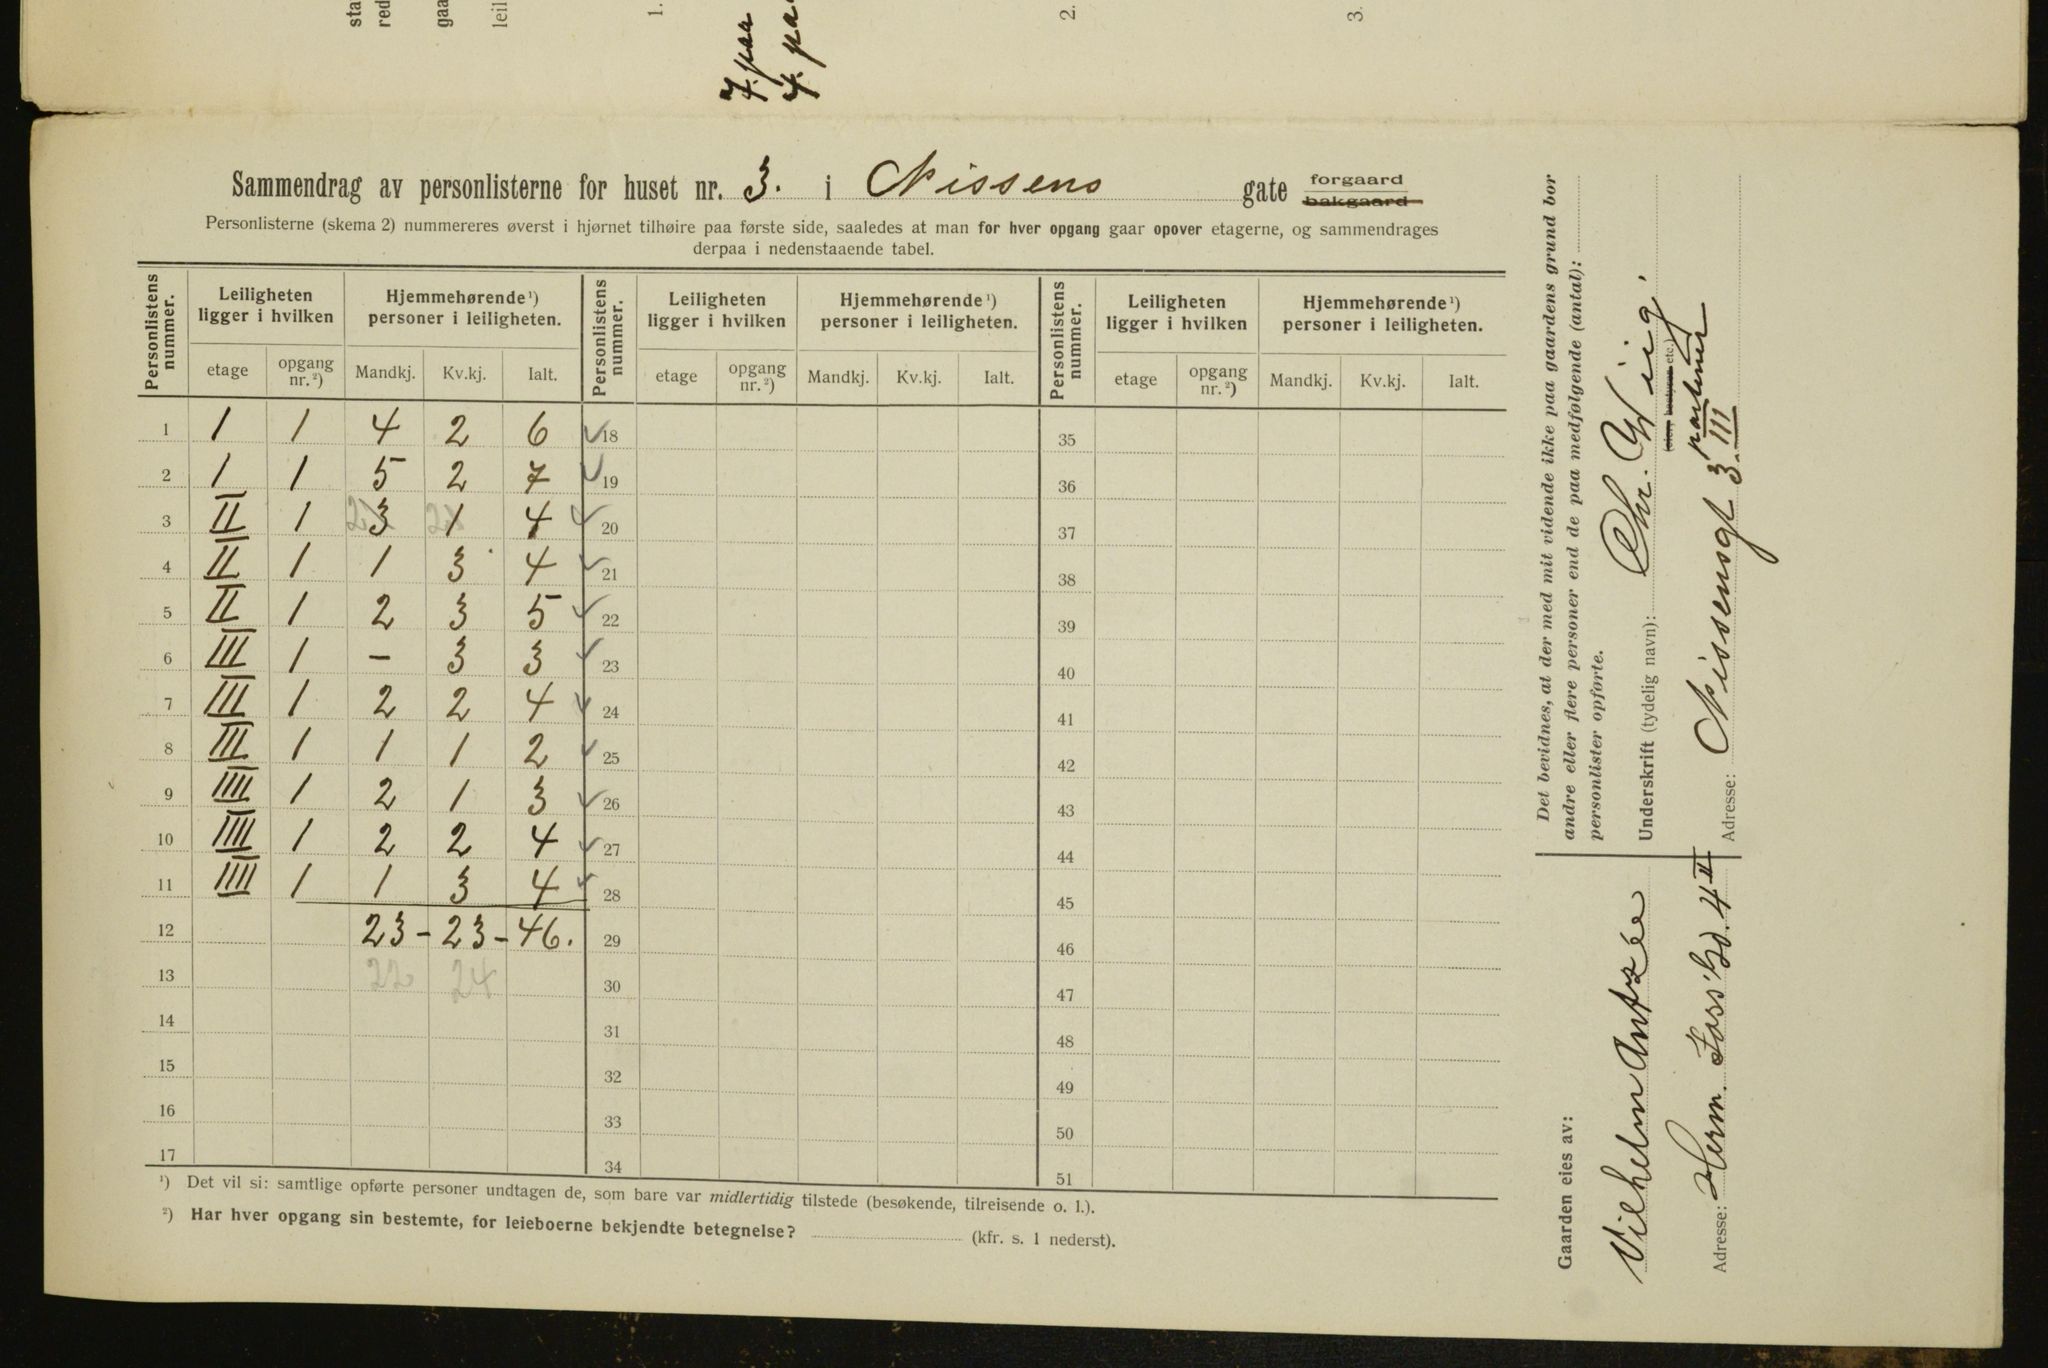 sta
red
gaa
leil
1.
2.
3.
7. paa
4. paa
Sammendrag av personlisterne for huset nr. 3. i Nissens gate forgaard bakgaard
Personlisterne (skema 2) nummereres øverst i hjørnet tilhøire paa første side, saaledes at man for hver opgang gaar opover etagerne, og sammendrages
derpaa i nedenstaaende tabel.
Personlistens nummer. Leiligheten ligger i hvilken Hjemmehørende¹) personer i leiligheten. Personlistens nummer. Leiligheten ligger i hvilken Hjemmehørende¹) personer i leiligheten. Personlistens nummer. Leiligheten ligger i hvilken Hjemmehørende¹) personer i leiligheten.
etage opgang nr.²) Mandkj. Kv.kj. Ialt. etage opgang nr.²) Mandkj. Kv.kj. Ialt. etage opgang nr.²) Mandkj. Kv.kj. Ialt.
1 I 1 4 2 6 ✓ 18 35
2 I 1 5 2 7 ✓ 19 36
3 II 1 3 1 4 ✓ 20 37
4 II 1 1 3 4 ✓ 21 38
5 II 1 2 3 5 ✓ 22 39
6 III 1 – 3 3 ✓ 23 40
7 III 1 2 2 4 ✓ 24 41
8 III 1 1 1 2 ✓ 25 42
9 IIII 1 2 1 3 ✓ 26 43
10 IIII 1 2 2 4 ✓ 27 44
11 IIII 1 1 3 4 ✓ 28 45
12 23 – 23 – 46. 29 46
13 22 24 30 47
14 31 48
15 32 49
16 33 50
17 34 51
¹) Det vil si: samtlige opførte personer undtagen de, som bare var midlertidig tilstede (besøkende, tilreisende o. l.).
²) Har hver opgang sin bestemte, for leieboerne bekjendte betegnelse? (kfr. s. 1 nederst).
Det bevidnes, at der med mit vidende ikke paa gaardens grund bor
andre eller flere personer end de paa medfølgende (antal):
personlister opførte.
Underskrift (tydelig navn): Chr. Wiig.
(eier, bestyrer etc.) partner
Adresse: Nissensgt 3. III
Gaarden eies av:
Vilhelm Antzée
Adresse: Herm. Foss'gd. 4 II